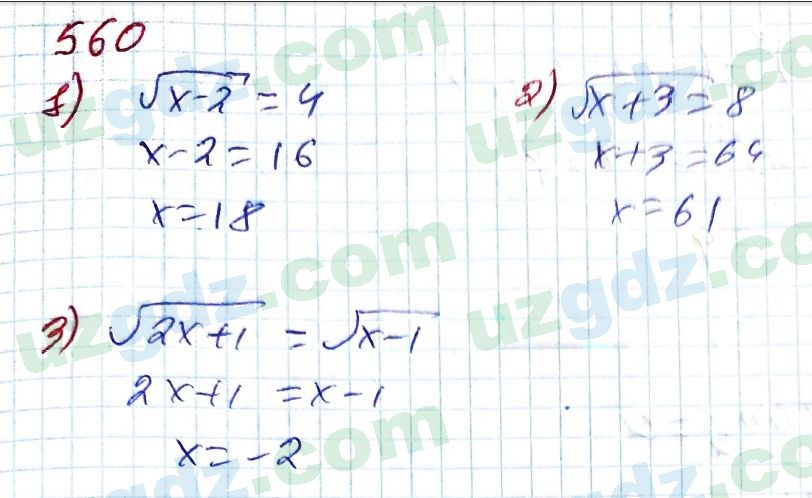 560
1) √(x-2) = 4
x-2=16
x=18
2) √(x+3) = 8
x+3=64
x=61
3) √(2x+1) = √(x-1)
2x+1 = x-1
x=-2
uzgdz.com
uzgdz.com
uzgdz.com
uzgdz.com
uzgdz.com